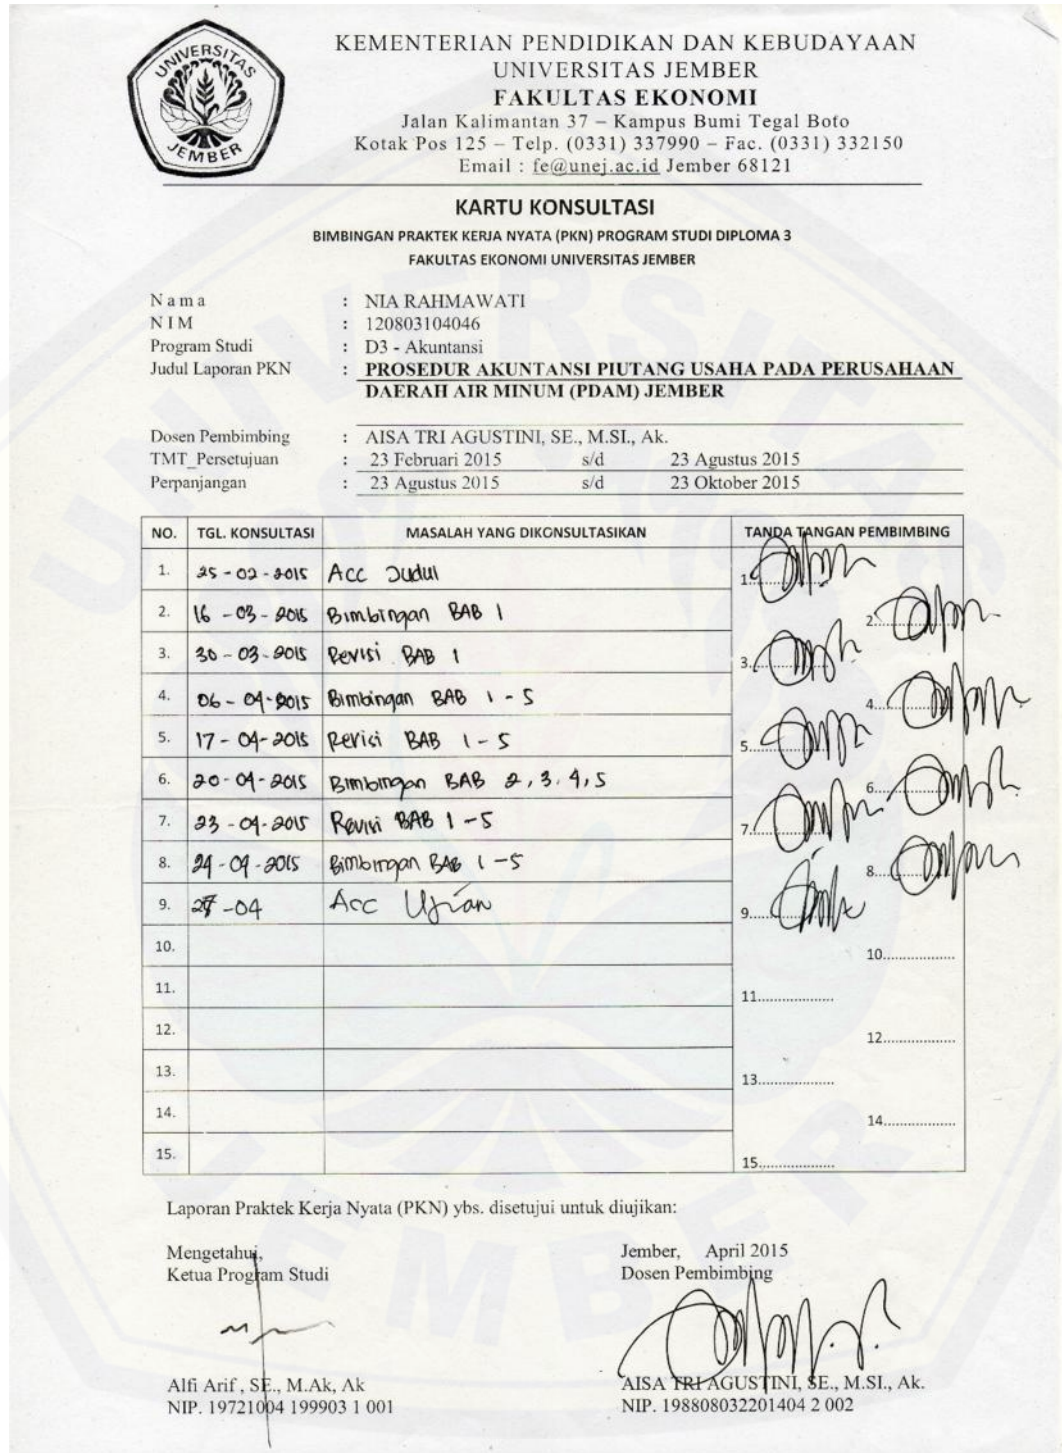 UNIVERSITAS
JEMBER
KEMENTERIAN PENDIDIKAN DAN KEBUDAYAAN
UNIVERSITAS JEMBER
FAKULTAS EKONOMI
Jalan Kalimantan 37 – Kampus Bumi Tegal Boto
Kotak Pos 125 – Telp. (0331) 337990 – Fac. (0331) 332150
Email : fe@unej.ac.id Jember 68121
KARTU KONSULTASI
BIMBINGAN PRAKTEK KERJA NYATA (PKN) PROGRAM STUDI DIPLOMA 3
FAKULTAS EKONOMI UNIVERSITAS JEMBER
Nama : NIA RAHMAWATI
NIM : 120803104046
Program Studi : D3 - Akuntansi
Judul Laporan PKN : PROSEDUR AKUNTANSI PIUTANG USAHA PADA PERUSAHAAN
DAERAH AIR MINUM (PDAM) JEMBER
Dosen Pembimbing : AISA TRI AGUSTINI, SE., M.SI., Ak.
TMT_Persetujuan : 23 Februari 2015 s/d 23 Agustus 2015
Perpanjangan : 23 Agustus 2015 s/d 23 Oktober 2015
NO. TGL. KONSULTASI MASALAH YANG DIKONSULTASIKAN TANDA TANGAN PEMBIMBING
1. 25-02-2015 Acc Judul 1
2. 16-03-2015 Bimbingan BAB 1 2
3. 30-03-2015 Revisi BAB 1 3
4. 06-04-2015 Bimbingan BAB 1-5 4
5. 17-04-2015 Revisi BAB 1-5 5
6. 20-04-2015 Bimbingan BAB 2,3,4,5 6
7. 23-04-2015 Revisi BAB 1-5 7
8. 24-04-2015 Bimbingan BAB 1-5 8
9. 27-04 Acc Ujian 9
10. 10
11. 11
12. 12
13. 13
14. 14
15. 15
Laporan Praktek Kerja Nyata (PKN) ybs. disetujui untuk diujikan:
Mengetahui, Jember, April 2015
Ketua Program Studi Dosen Pembimbing
Alfi Arif , SE., M.Ak, Ak AISA TRI AGUSTINI, SE., M.SI., Ak.
NIP. 19721004 199903 1 001 NIP. 198808032201404 2 002